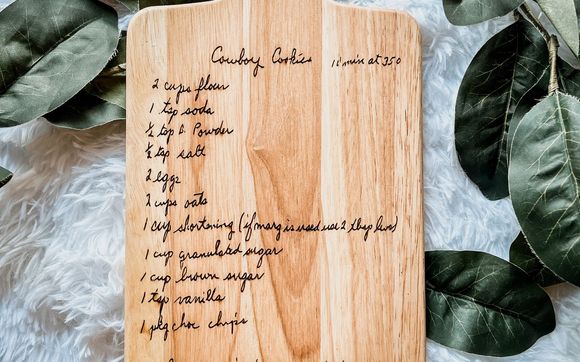 Cowboy Cookies 11 min at 350
2 cups flour
1 tsp soda
½ tsp b. Powder
½ tsp salt
2 eggs
2 cups oats
1 cup shortening (if marg is used use 2 tbsp less)
1 cup granulated sugar
1 cup brown sugar
1 tsp vanilla
1 pkg choc chips